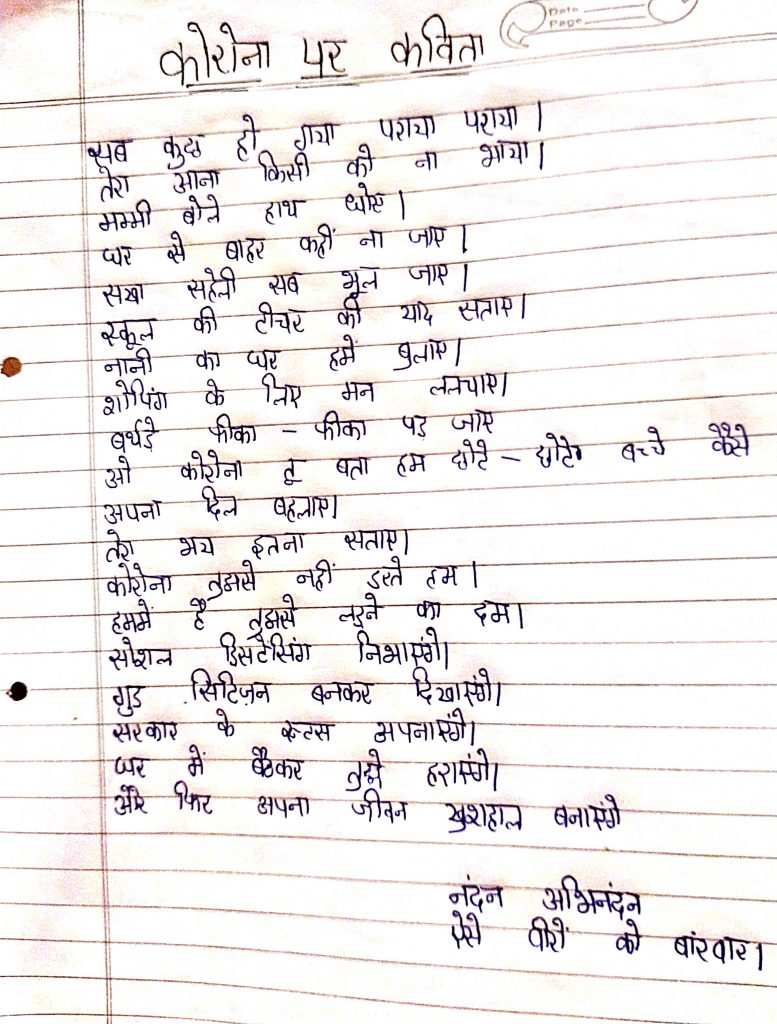 Date
Page
कोरोना पर कविता
सब कुछ हो गया पराया पराया।
तेरा आना किसी को ना भाया।
मम्मी बोले हाथ धोए।
घर से बाहर कहीं ना जाए।
सखा सहेली सब भूल जाए।
स्कूल की टीचर की याद सताए।
नानी का घर हमें बुलाए।
शोपिंग के लिए मन ललचाए।
बर्थडे फीका - फीका पड़ जाए
ओ कोरोना तू बता हम छोटे - छोटे बच्चे कैसे
अपना दिल बहलाए।
तेरा भय इतना सताए।
कोरोना तुझसे नहीं डरते हम।
हममें है तुझसे लड़ने का दम।
सोशल डिसटेंसिंग निभाएंगे।
गुड सिटिज़न बनकर दिखाएंगे।
सरकार के रूल्स अपनाएंगे।
घर में बैठकर तुझे हराएंगे।
और फिर अपना जीवन खुशहाल बनाएंगे
नंदन अभिनंदन
ऐसे वीरों को बांरबार।